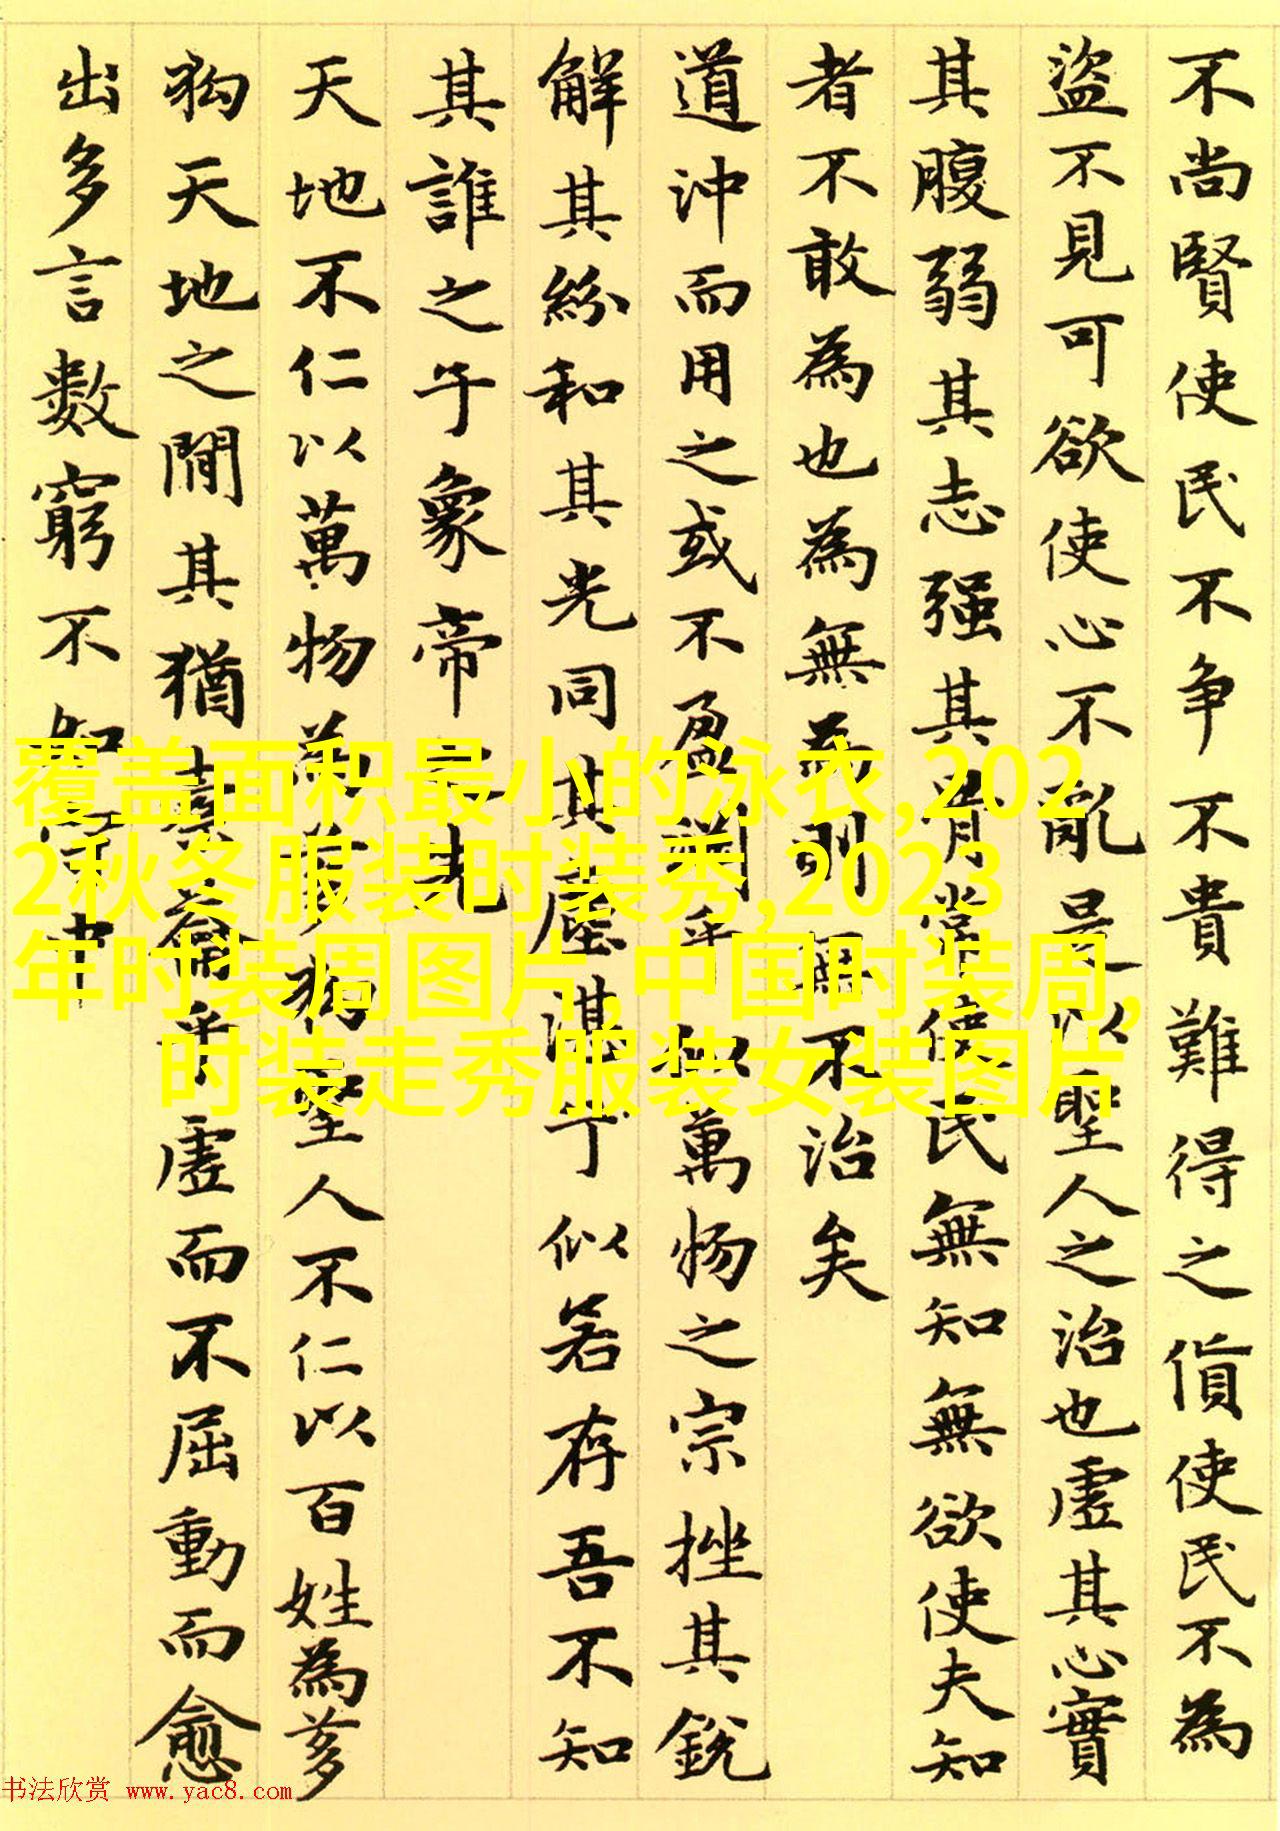 不尚賢使民不争不貴難得之貨使民不為
盜不見可欲使心不亂是以聖人之治也虛其心實
其腹弱其志强其骨常使民無知無欲使夫知
者不敢為也為無為則無不治矣
道沖而用之或不盈淵乎似萬物之宗挫其銳
解其紛和其光同其塵湛乎似若存吾不知
其誰之子象帝之先
天地不仁以萬物為芻狗聖人不仁以百姓為芻
狗天地之間其猶橐籥乎虛而不屈動而愈
出多言數窮不如守中
覆盖面积最小的泳衣,202
2秋冬服装时装秀,2023
年时装周图片,中国时装周,
时装走秀服装女装图片
书法欣赏 www.yac8.com